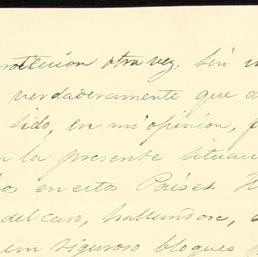 protección otra vez. Sin
verdaderamente que
sido, en mi opinion,
la presente situac
en estos Países.
del caso, hallandose,
riguroso bloqueo